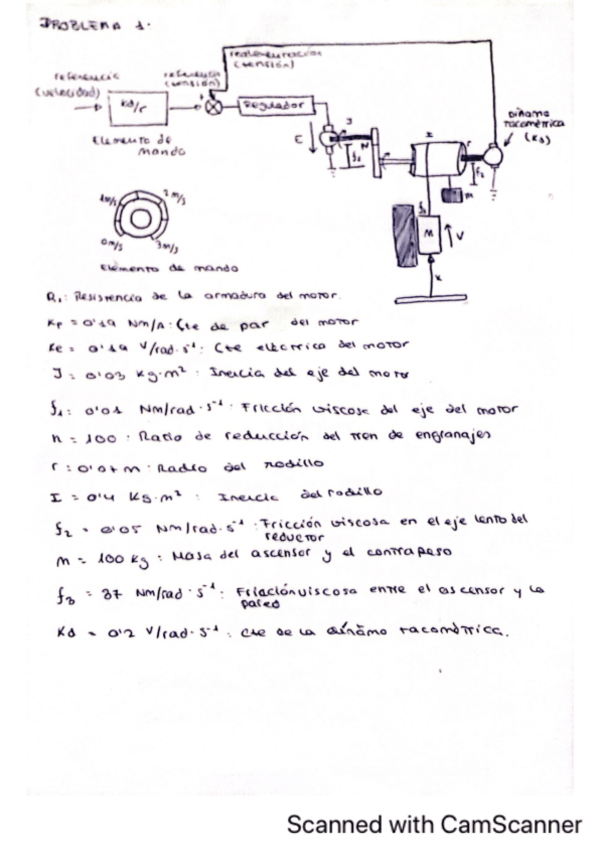 PROBLEMA 1.
realimentación
(tensión)
referencia
(velocidad)
referencia
(tensión)
kd/r
Regulador
Elemento de
mando
Dínamo
tacométrica
(Kd)
E
J
N
f1
I
r
f2
m
f3
M
V
x
1m/s
2m/s
0m/s
3m/s
Elemento de mando
R1: Resistencia de la armadura del motor.
Kp = 0'19 Nm/A: Cte de par del motor
Ke = 0'19 V/rad·s⁻¹: Cte eléctrica del motor
J = 0'03 kg·m²: Inercia del eje del motor
f1: 0'01 Nm/rad·s⁻¹: Fricción viscosa del eje del motor
n = 100: Ratio de reducción del tren de engranajes
r: 0'07 m: Radio del rodillo
I = 0'4 kg·m²: Inercia del rodillo
f2 = 0'05 Nm/rad·s⁻¹: Fricción viscosa en el eje lento del
reductor
m = 100 kg: Masa del ascensor y el contrapeso
f3 = 37 Nm/rad·s⁻¹: Fricción viscosa entre el ascensor y la
pared
Kd = 0'2 V/rad·s⁻¹: cte de la dínamo tacométrica.
Scanned with CamScanner